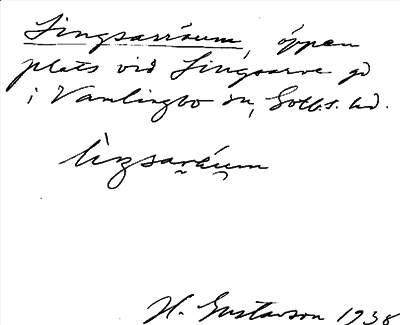 Lingsarråum, öppen
plats vid Lingsarve gd
i Vamlingbo sn, Gotl.s. hd.
lìŋsaráum
H. Gustavson 1938